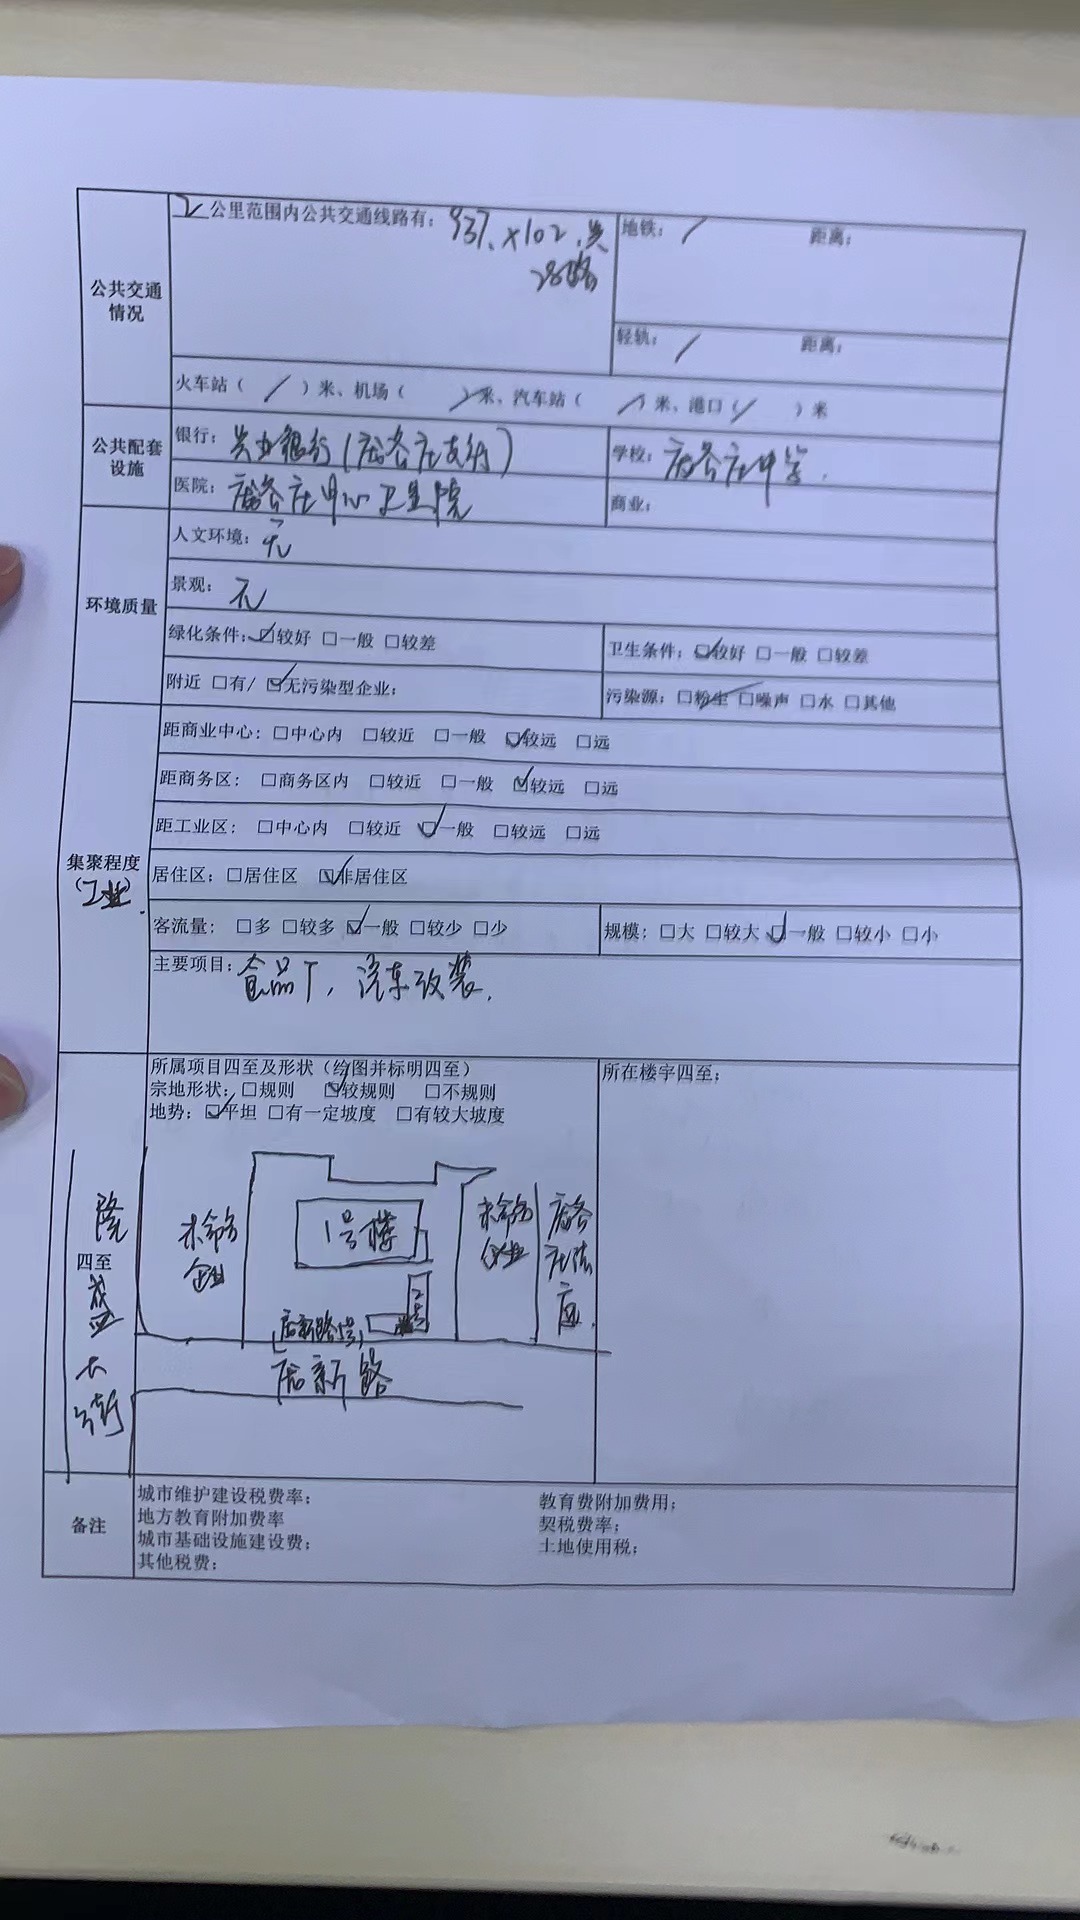 2公里范围内公共交通线路有：937、x102、兴
28路
地铁：/ 距离：
轻轨：/ 距离：
公共交通
情况
火车站（ / ）米、机场（ / ）米、汽车站（ / ）米、港口（ / ）米
公共配套
设施
银行：兴业银行（ 支行）
学校： 各庄中学.
医院： 各庄中心卫生院
商业：
环境质量
人文环境：无
景观：无
绿化条件：☑较好 □一般 □较差
卫生条件：☑较好 □一般 □较差
附近 □有/ ☑无污染型企业；
污染源：□粉尘 □噪声 □水 □其他
集聚程度
（工业）.
距商业中心：□中心内 □较近 □一般 ☑较远 □远
距商务区：□商务区内 □较近 □一般 ☑较远 □远
距工业区：□中心内 □较近 ☑一般 □较远 □远
居住区：□居住区 ☑非居住区
客流量：□多 □较多 ☑一般 □较少 □少
规模：□大 □较大 ☑一般 □较小 □小
主要项目：食品厂，汽车改装.
所属项目四至及形状（绘图并标明四至）
宗地形状：□规则 ☑较规则 □不规则
地势：☑平坦 □有一定坡度 □有较大坡度
所在楼宇四至：
四至
隆
盛
大
街
未命名
企业
1号楼
2号
未命名
企业
各
庄法
庭.
新路 号
新路
备注
城市维护建设税费率：
地方教育附加费率
城市基础设施建设费：
其他税费：
教育费附加费用：
契税费率；
土地使用税；